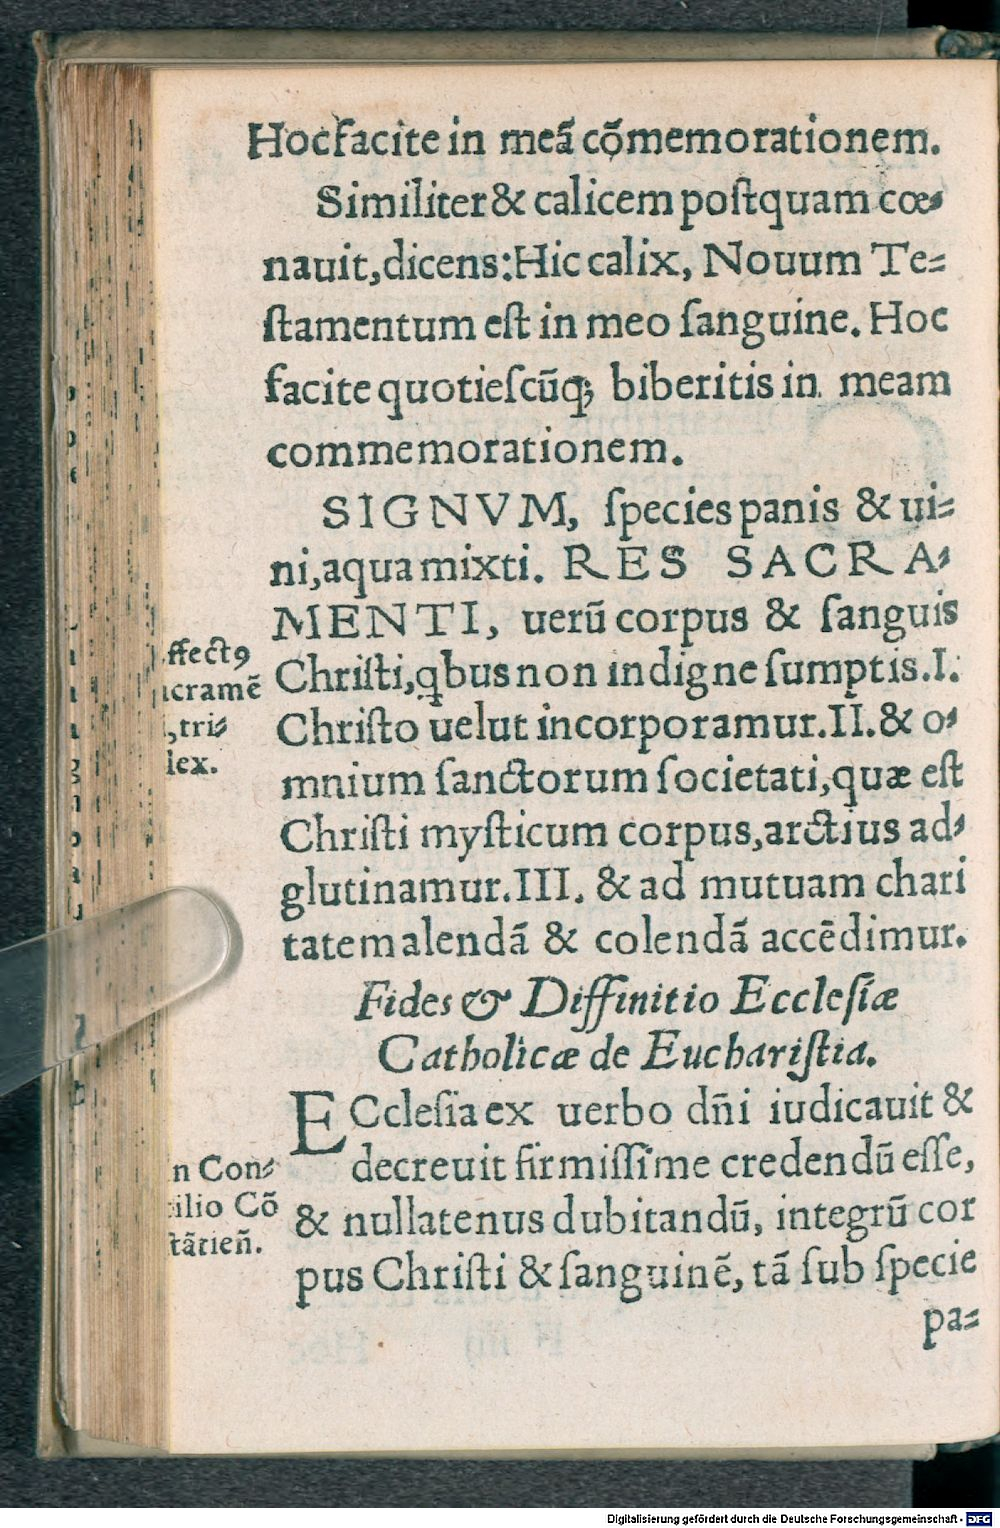 Hoc facite in meã cõmemorationem.
Similiter & calicem poſtquam cœ⸗
nauit, dicens: Hic calix, Nouum Te⸗
ſtamentum eſt in meo ſanguine. Hoc
facite quotieſcũq; biberitis in meam
commemorationem.
SIGNVM, ſpecies panis & ui⸗
ni, aqua mixti. RES SACRA⸗
MENTI, uerũ corpus & ſanguis
Chriſti, qbus non indigne ſumptis. I.
Chriſto uelut incorporamur. II. & o⸗
mnium ſanctorum ſocietati, quæ eſt
Chriſti myſticum corpus, arctius ad⸗
glutinamur. III. & ad mutuam chari
tatem alendã & colendã accẽdimur.
ffectꝯ
cramẽ
, tri⸗
lex.
Fides & Diffinitio Eccleſiæ
Catholicæ de Euchariſtia.
ECcleſia ex uerbo dñi iudicauit &
decreuit firmiſſime credendũ eſſe,
& nullatenus dubitandũ, integrũ cor
pus Chriſti & ſanguinẽ, tã ſub ſpecie
n Con⸗
ilio Cõ
ſtãtieñ.
pa⸗
Digitalisierung gefördert durch die Deutsche Forschungsgemeinschaft - DFG